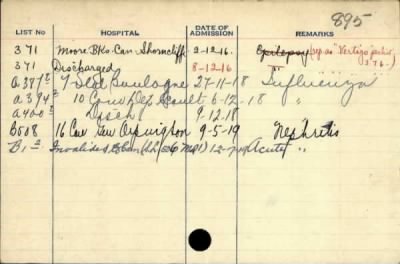 895
LIST No HOSPITAL DATE OF ADMISSION REMARKS
371 Moore Bks. Can Shorncliffe 2-12-16. Epilepsy (up as "Vertigo
371 Discharged 8-12-16 371.)
A377² 7 Stat Boulogne 27-11-18 Influenza
A394² 10 Conv Dep Ecault 6-12-18 "
A400² Disch 9.12.18
B508 16 Can Gen Orpington 9-5-19 Nephritis
B1 Invalided to Can Acute "